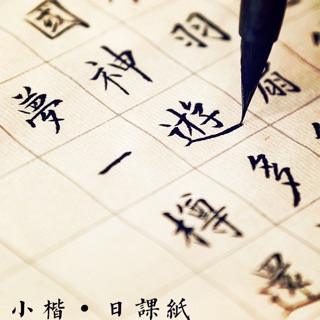 羽扇
國神遊多
夢一樽還
小楷•日課紙